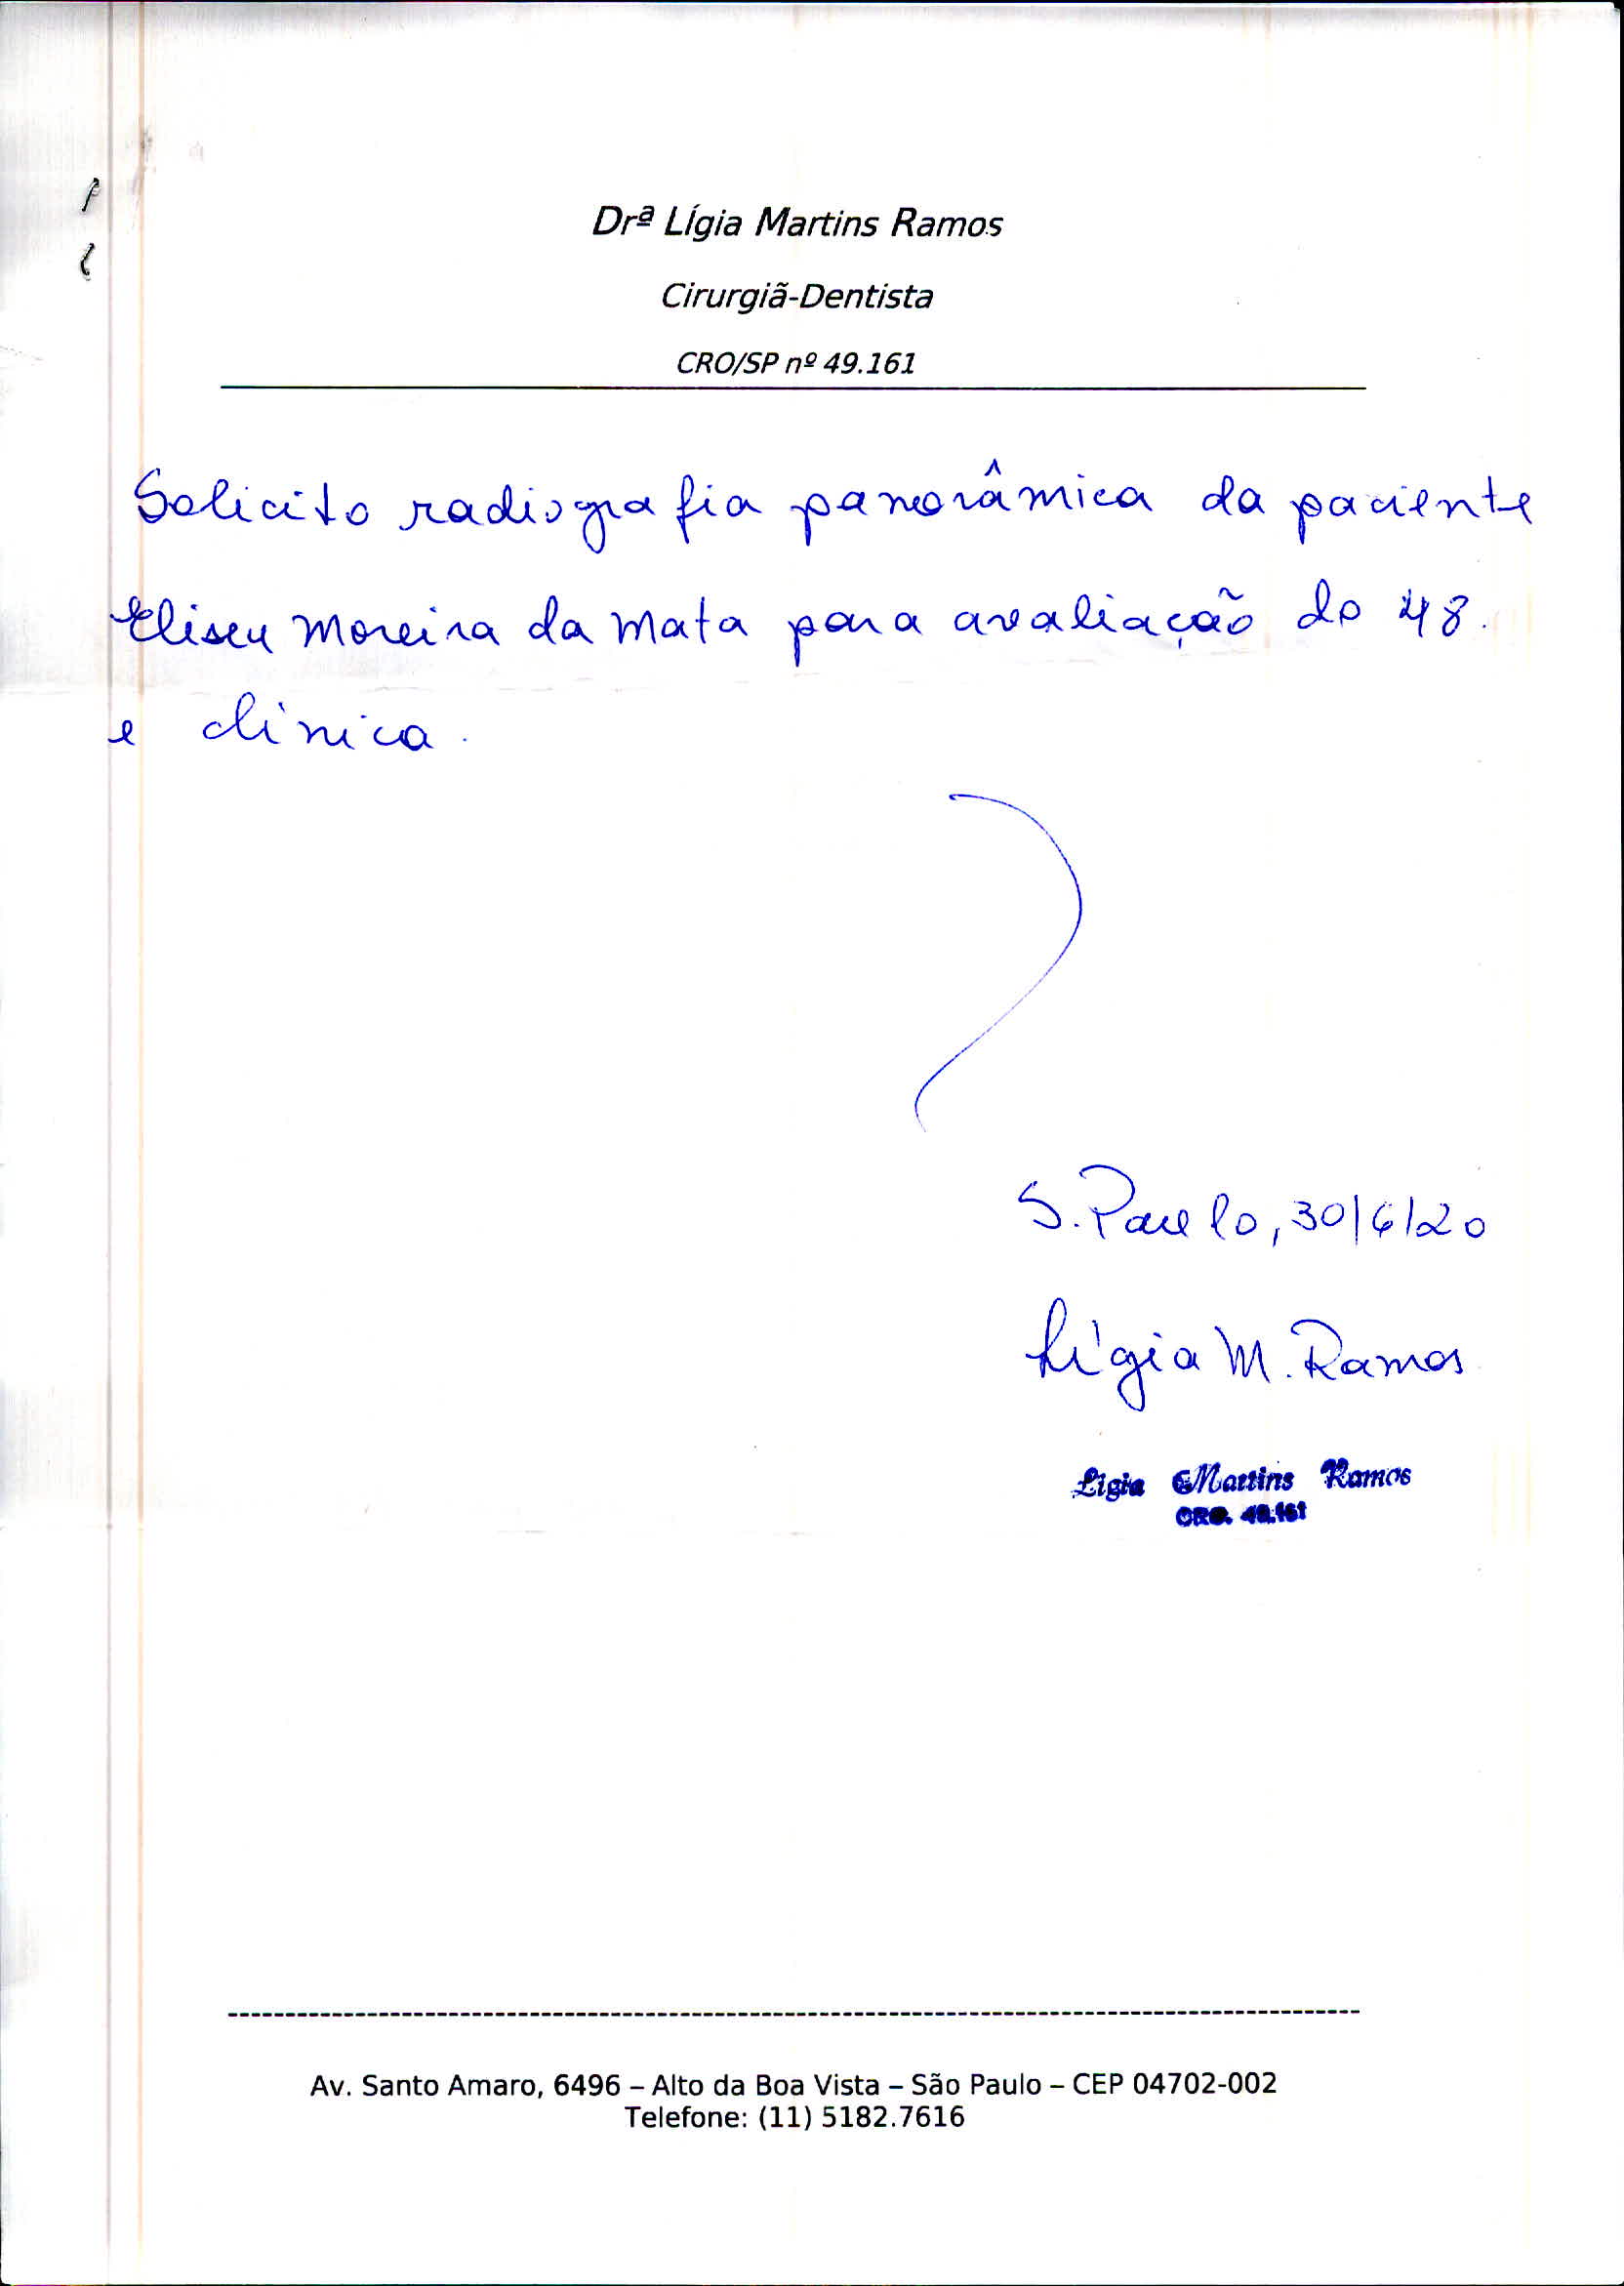 Drª Lígia Martins Ramos
Cirurgiã-Dentista
CRO/SP nº 49.161
Solicito radiografia panorâmica da paciente
Eliseu Moreira da Mata para avaliação do 48.
e clínica.
S. Paulo, 30/6/20
Lígia M. Ramos
Ligia Martins Ramos
CRO. 49.161
Av. Santo Amaro, 6496 – Alto da Boa Vista – São Paulo – CEP 04702-002
Telefone: (11) 5182.7616